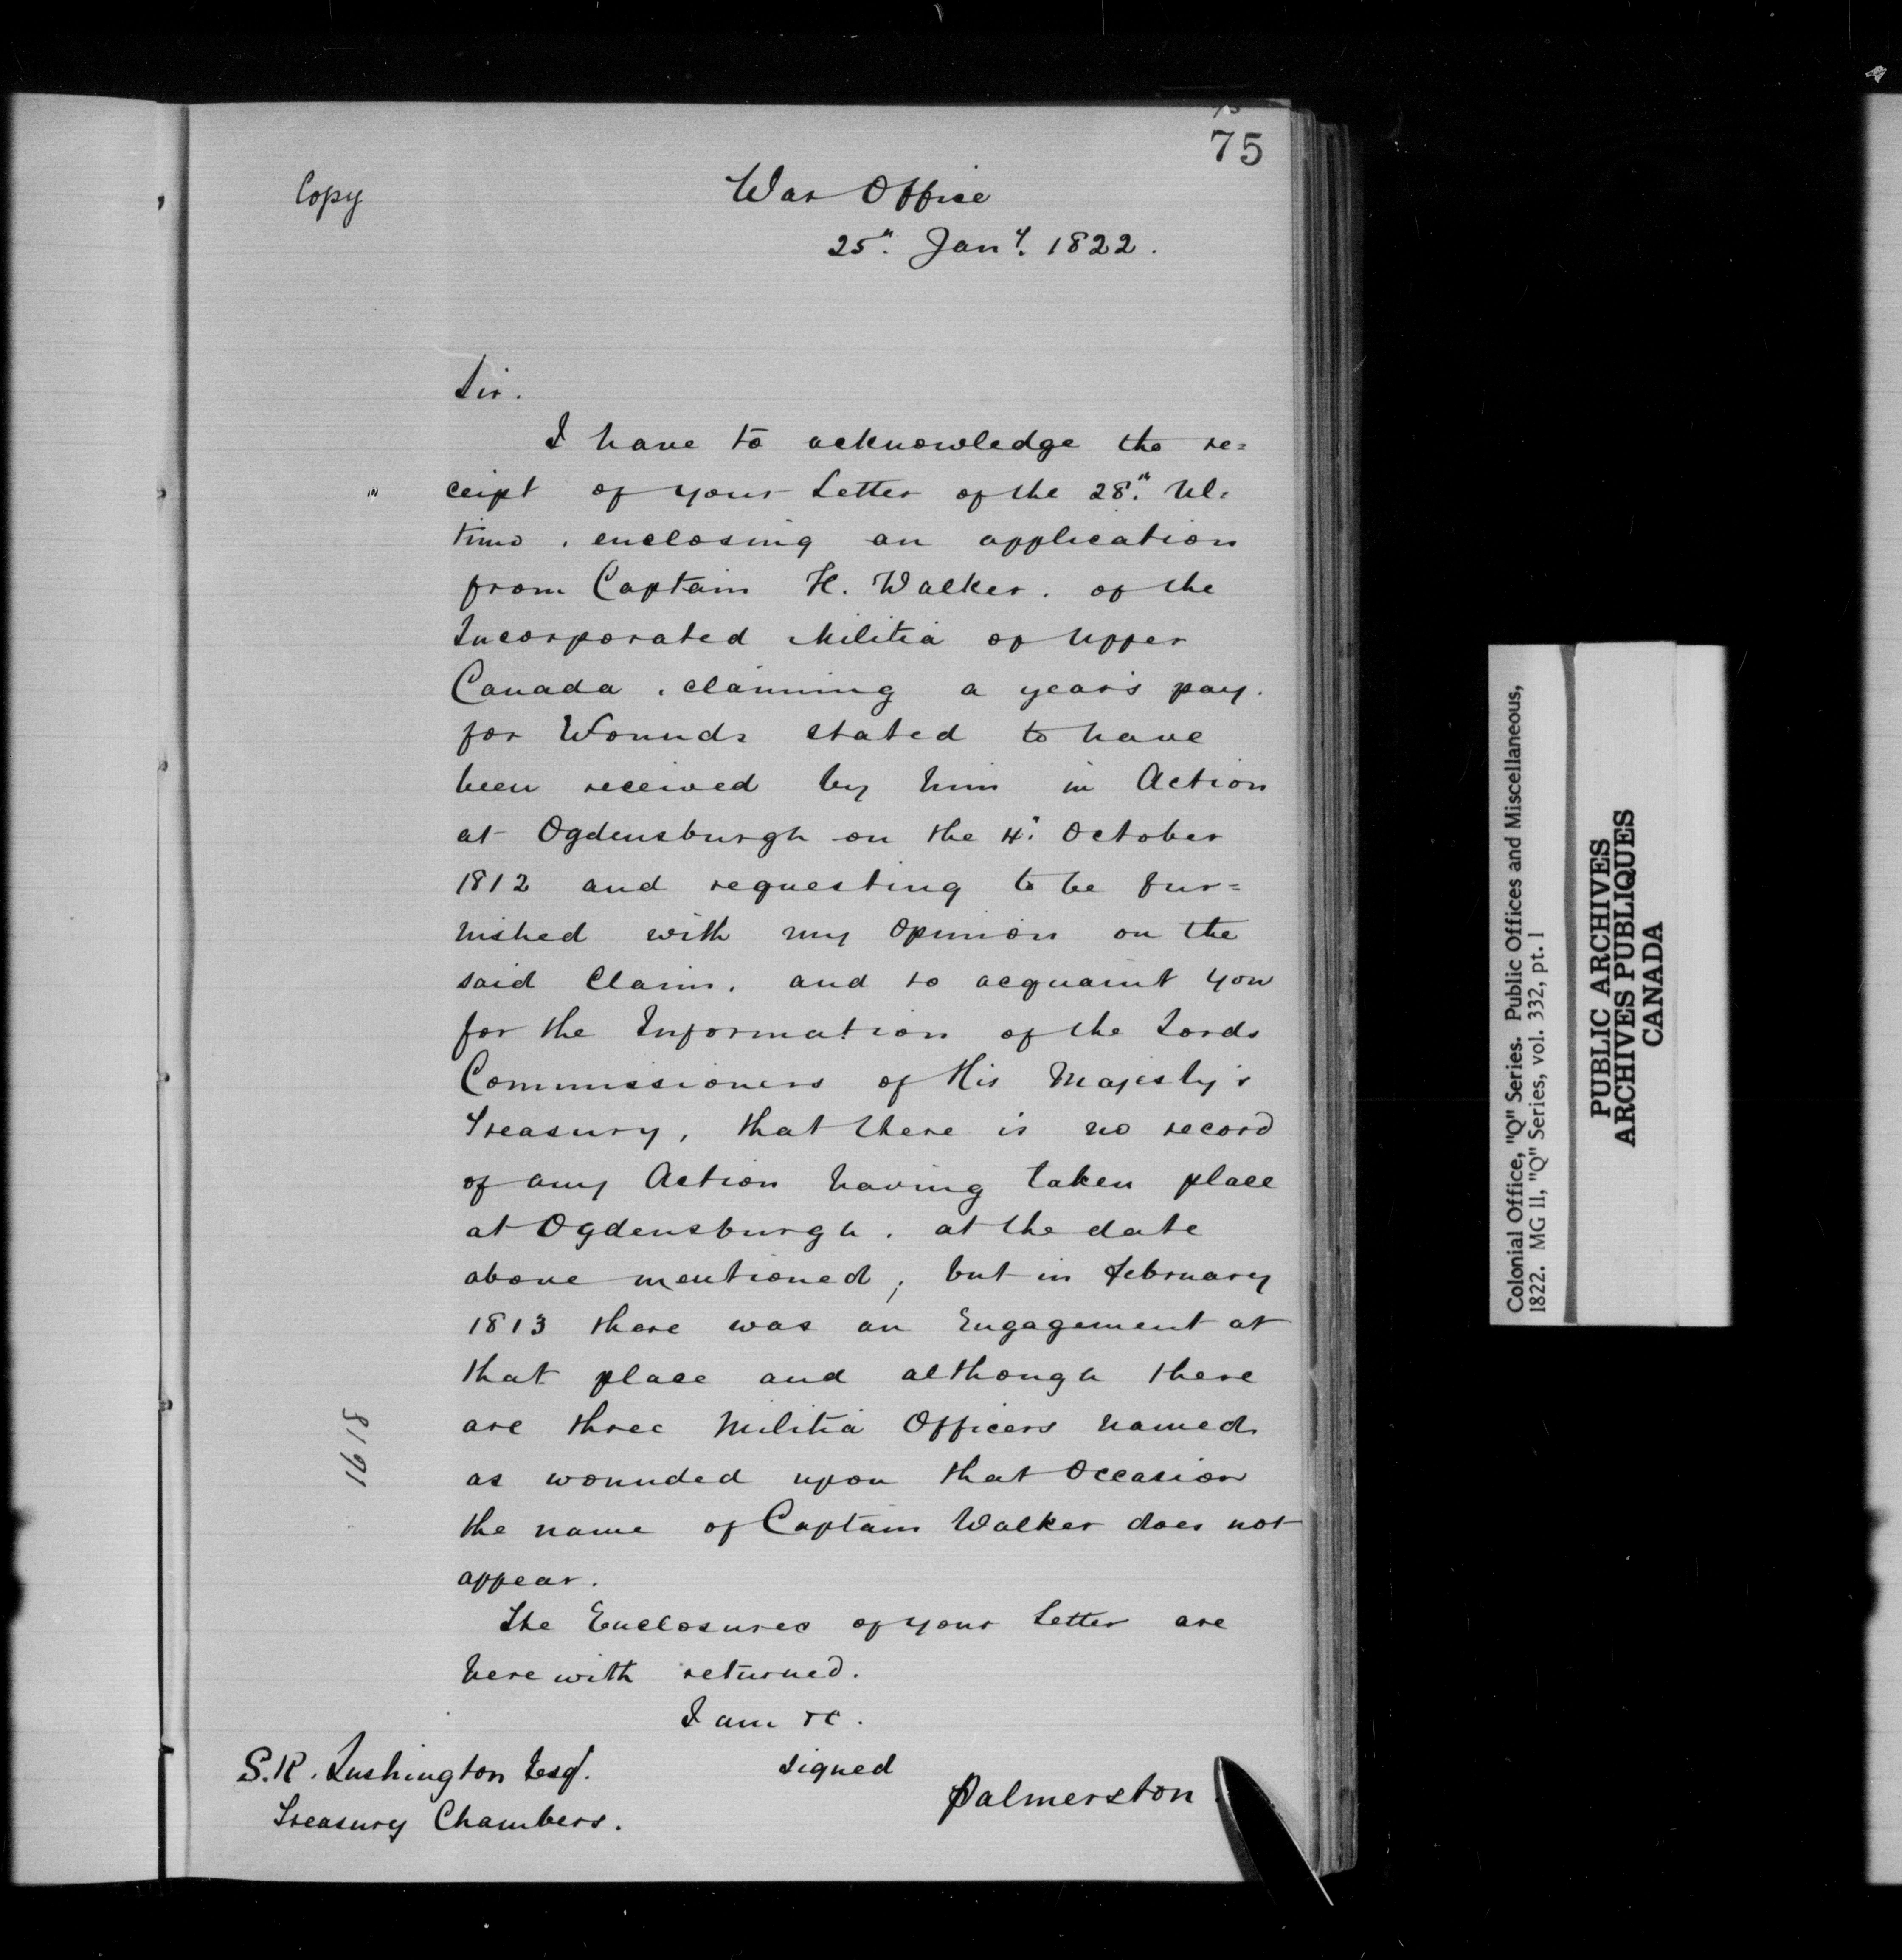 75
Copy
War Office
25". Jany. 1822.
Sir.
I have to acknowledge the re=
ceipt of your Letter of the 28". Ul=
timo, enclosing an application
from Captain H. Walker. of the
Incorporated Militia of Upper
Canada, claiming a year's pay.
for Wounds stated to have
been received by him in Action
at Ogdensburgh on the 4". October
1812 and requesting to be fur=
nished with my opinion on the
said Claim, and to acquaint you
for the Information of the Lords
Commissioners of His Majesty's
Treasury, that there is no record
of any Action having taken place
at Ogdensburgh. at the date
above mentioned; but in February
1813 there was an Engagement at
that place and although there
are three Militia Officers named
as wounded upon that Occasion
the name of Captain Walker does not
appear.
The Enclosures of your Letter are
here with returned.
I am &c.
signed
Palmerston.
S.R. Lushington Esq.
Treasury Chambers.
8191
Colonial Office, "Q" Series. Public Offices and Miscellaneous,
1822. MG 11, "Q" Series, vol. 332, pt. 1
PUBLIC ARCHIVES
ARCHIVES PUBLIQUES
CANADA